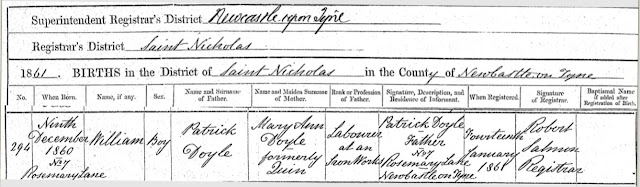 Superintendent Registrar's District Newcastle upon Tyne
Registrar's District Saint Nicholas
1861. BIRTHS in the District of Saint Nicholas in the County of Newcastle on Tyne
No. When Born. Name, if any. Sex. Name and Surname of Father. Name and Maiden Surname of Mother. Rank or Profession of Father. Signature, Description, and Residence of Informant. When Registered. Signature of Registrar. Baptismal Name if added after Registration of Birth.
294 Ninth December 1860 No 7 Rosemary Lane
William
Boy
Patrick Doyle
Mary Ann Doyle formerly Quin
Labourer at an Iron Works
Patrick Doyle Father No 7 Rosemary Lane Newcastle on Tyne
Fourteenth January 1861
Robert Salmon Registrar